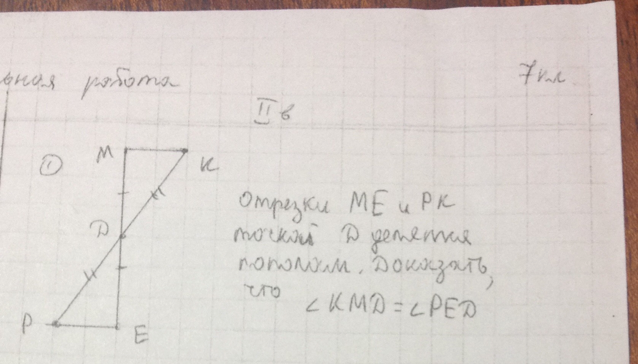 льная работа
7 кл.
II в
① M K
Отрезки ME и PK
точкой D делятся
пополам. Доказать,
что ∠KMD = ∠PED
D
P E